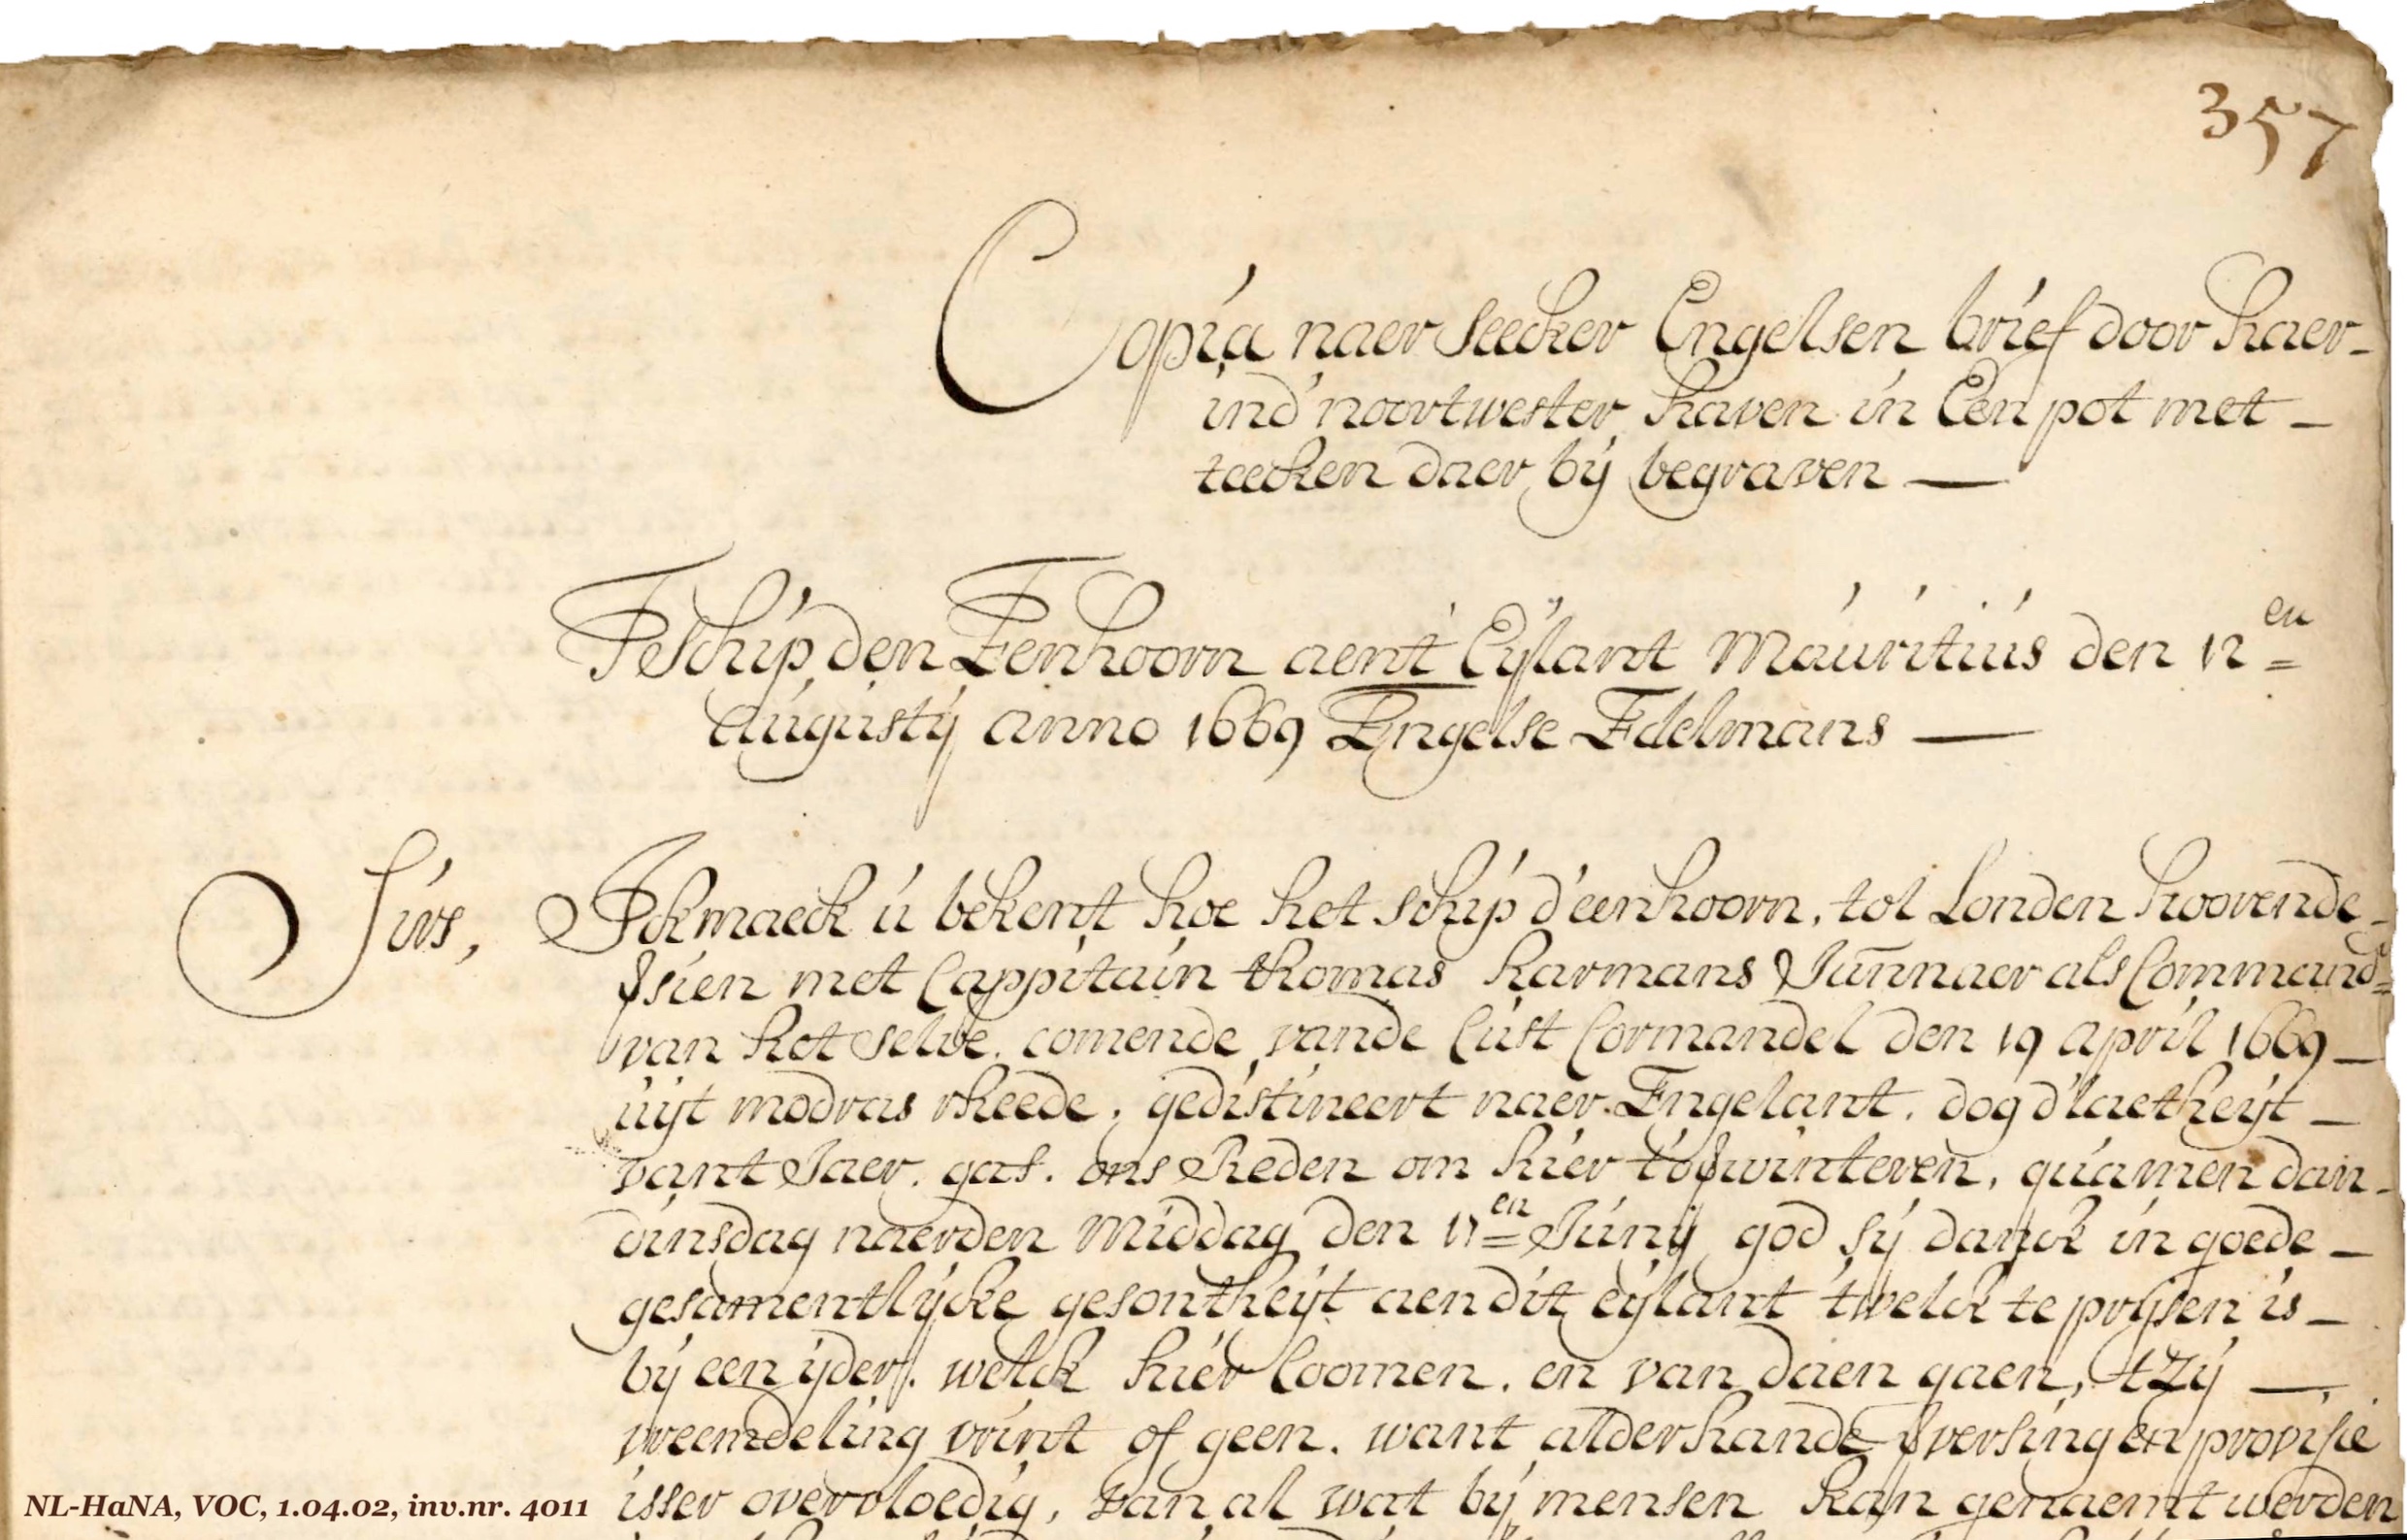 357
Copia naer seecker Engelsen brief door haer
ind' noortwester haven in Een pot met
teecken daer bij begraven
T'schip den Eenhoorn aent Eijlant Mauritius den 12en
augustij anno 1669 Engelse Edelmans
Sirs, Ick maeck u bekent hoe het schip d'eenhoorn, tot Londen hoorende
sien met Cappitain thomas harmans als Command
van het selve. comende vande Cust Cormandel den 19 april 1669
uijt madras rheede, gedistineert naer Engelant. dog d'laetheijt
vant Jaer. gaf. ons Reden om hier t'overwinteren, quamen dan
dinsdag naerden middag den 11en Junij god sij danck in goede
gesamentlijcke gesontheijt aen dit eijlant twelck te prijsen is
bij een ijder. welck hier Coomen. en van daen gaen, tzij
vreemdeling vrint of geen. want alderhande versing en provisie
isser overvloedig, van al wat bij mensen kan genaemt werden
NL-HaNA, VOC, 1.04.02, inv.nr. 4011